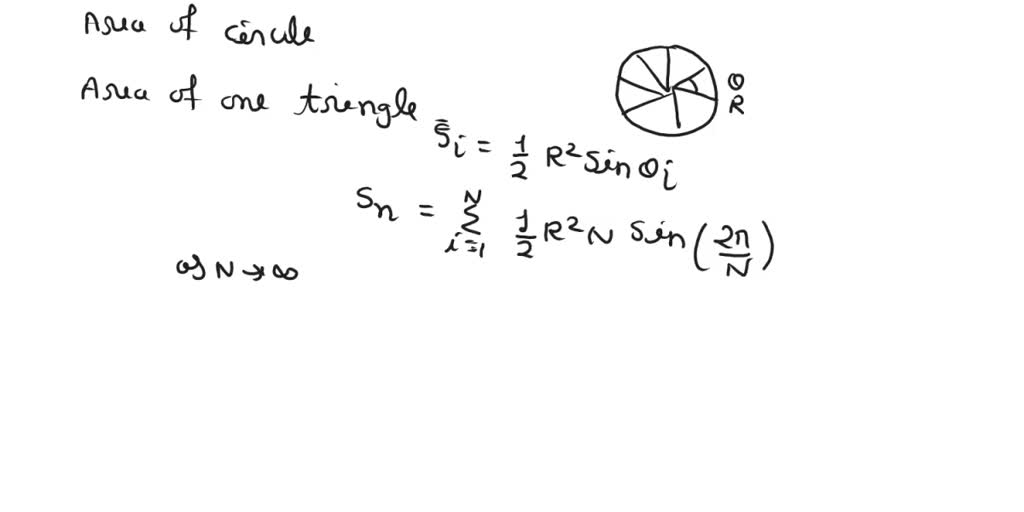 Area of circle
θ
R
Area of one triangle
S̄i = 1/2 R² sin θi
Sn = N Σ i=1 1/2 R² N sin (2π/N)
as N → ∞